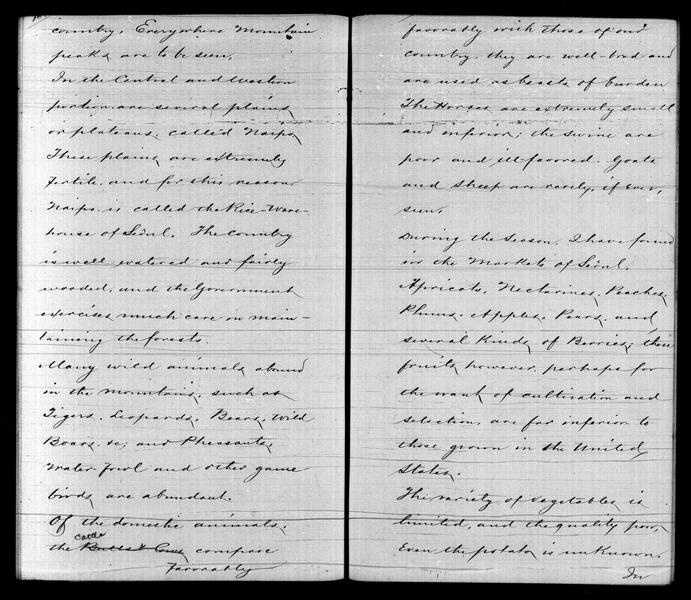 country, Everywhere Mountain
peaks are to be seen.
In the Central and Western
portion are several plains
or plateaus, called Naips,
These plains are extremely
fertile, and for this reason
Naipo is called the Rice Ware-
house of Seoul. The Country
is well watered and fairly
wooded; and the Government
exercises much care in main-
taining the forests.
Many wild animals abound
in the mountains, such as
Tigers, Leopards, Bears, Wild
Boars &c; and Pheasants,
Water-fowl and other game
birds are abundant.
Of the domestic animals,
cattle
the Bulls & Cows compare
favorably
favorably with those of our
country, they are well-bred and
are used as beasts of burden
The Horses are extremely small
and inferior; the swine are
poor and ill-favored. Goats
and Sheep are rarely, if ever,
seen.
During the Season, I have found
in the Markets of Seoul,
Apricots, Nectarines, Peaches,
Plums, Apples, Pears, and
several kinds of Berries; these
fruits however, perhaps for
the want of cultivation and
selection, are far inferior to
those grown in the United
States.
The variety of vegetables is
limited, and the quality poor,
Even the potato is unknown.
In